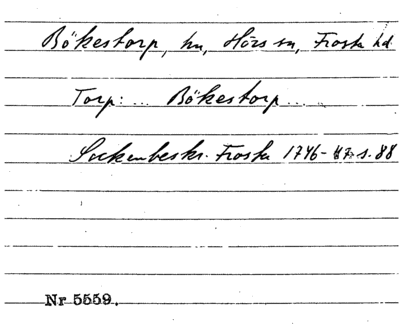 Bökestorp, hu, Hörs sn, Frosta hd
Torp: ... Bökestorp ...
Sockenbeskr. Frosta 1746-47 s. 88
Nr 5559.